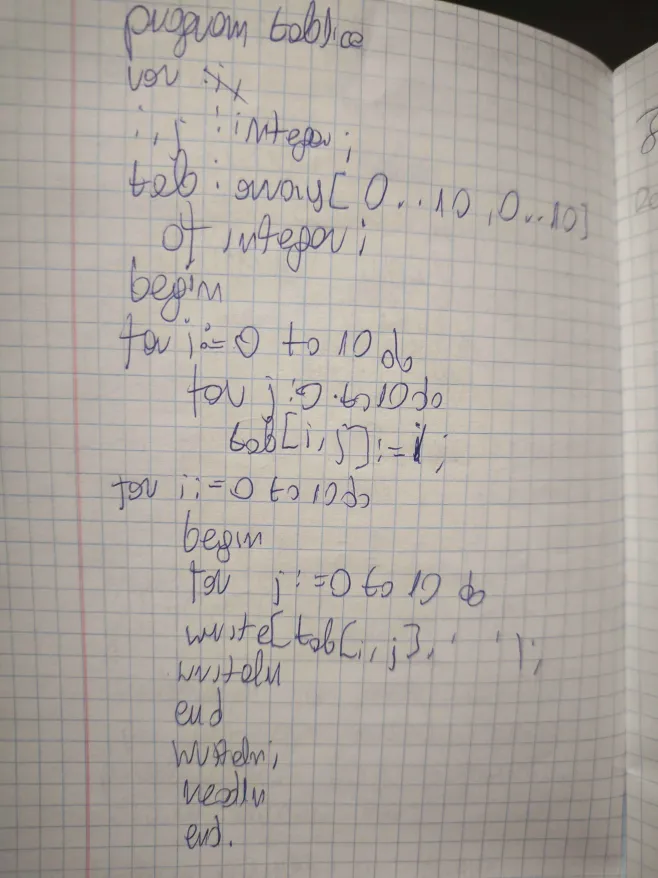 program tablice
var
i, j : integer;
tab : array[ 0..10 ,0..10]
of integer;
begin
for i:=0 to 10 do
for j:0 to 10 do
tab[i,j]:=1;
for i:=0 to 10 do
begin
for j:=0 to 10 do
write[tab[i,j],' ');
writeln
end
writeln;
readln
end.